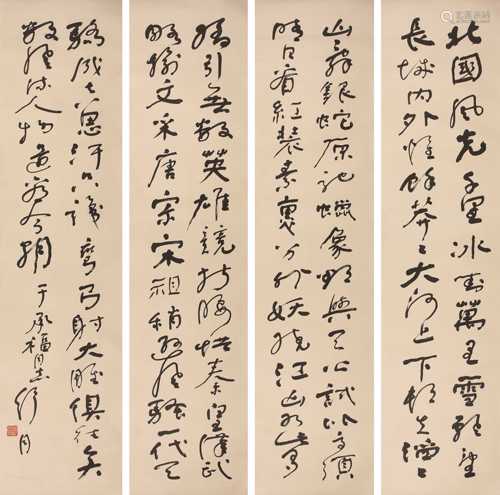 北國風光千里冰封萬里雪飄望
長城内外惟餘莽〻大河上下頓失滔〻
山舞銀蛇原馳蠟像欲與天公試比高須
晴日看紅裝素裹分外妖嬈江山如此多
嬌引無數英雄競折腰惜秦皇漢武
略輸文采唐宗宋祖稍遜風騷一代天
驕成吉思汗只識彎弓射大雕俱往矣
數風流人物還看今朝 于承福同志 舒同